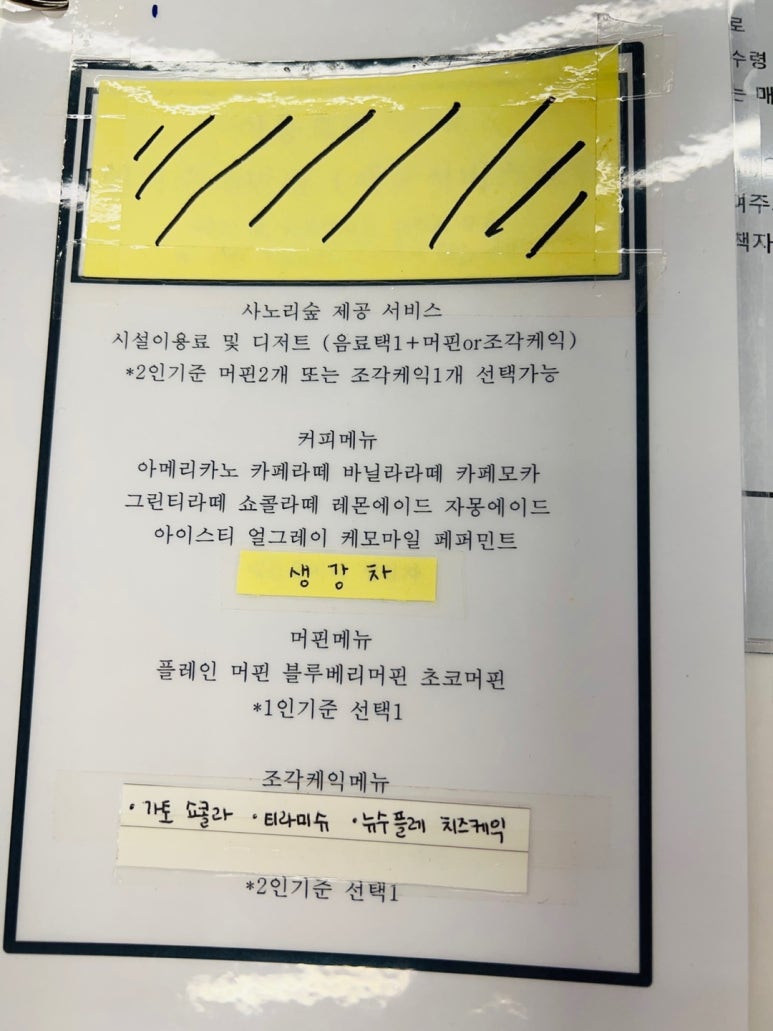 사노리숲 제공 서비스
시설이용료 및 디저트 (음료택1+머핀or조각케익)
*2인기준 머핀2개 또는 조각케익1개 선택가능
커피메뉴
아메리카노 카페라떼 바닐라라떼 카페모카
그린티라떼 쇼콜라떼 레몬에이드 자몽에이드
아이스티 얼그레이 케모마일 페퍼민트
생강차
머핀메뉴
플레인 머핀 블루베리머핀 초코머핀
*1인기준 선택1
조각케익메뉴
·가토 쇼콜라 ·티라미슈 ·뉴수플레 치즈케익
*2인기준 선택1
로
수령
는 매
여주
책자